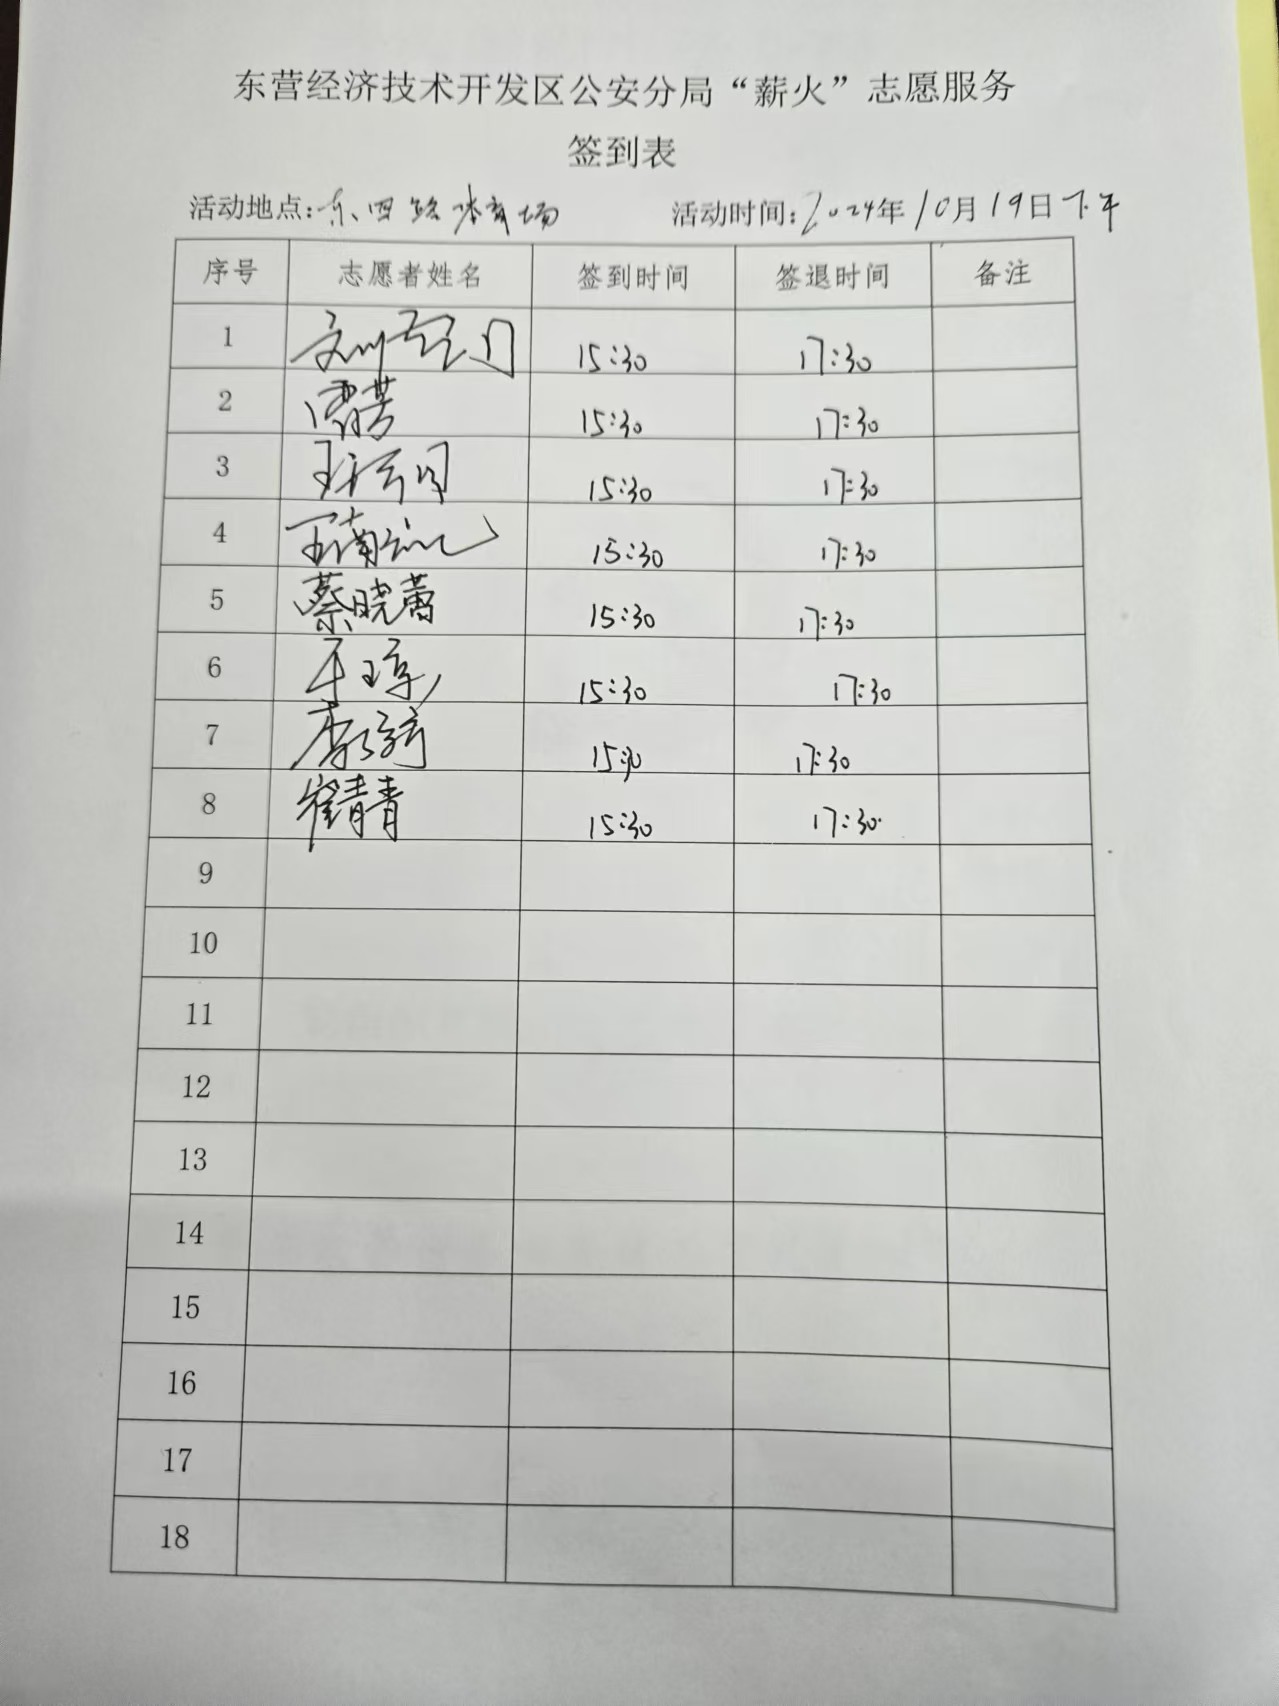 东营经济技术开发区公安分局“薪火”志愿服务
签到表
活动地点:东四路体育场 活动时间:2024年10月19日下午
序号 志愿者姓名 签到时间 签退时间 备注
1 15:30 17:30
2 15:30 17:30
3 15:30 17:30
4 15:30 17:30
5 蔡晓蕾 15:30 17:30
6 15:30 17:30
7 15:30 17:30
8 崔青青 15:30 17:30
9
10
11
12
13
14
15
16
17
18